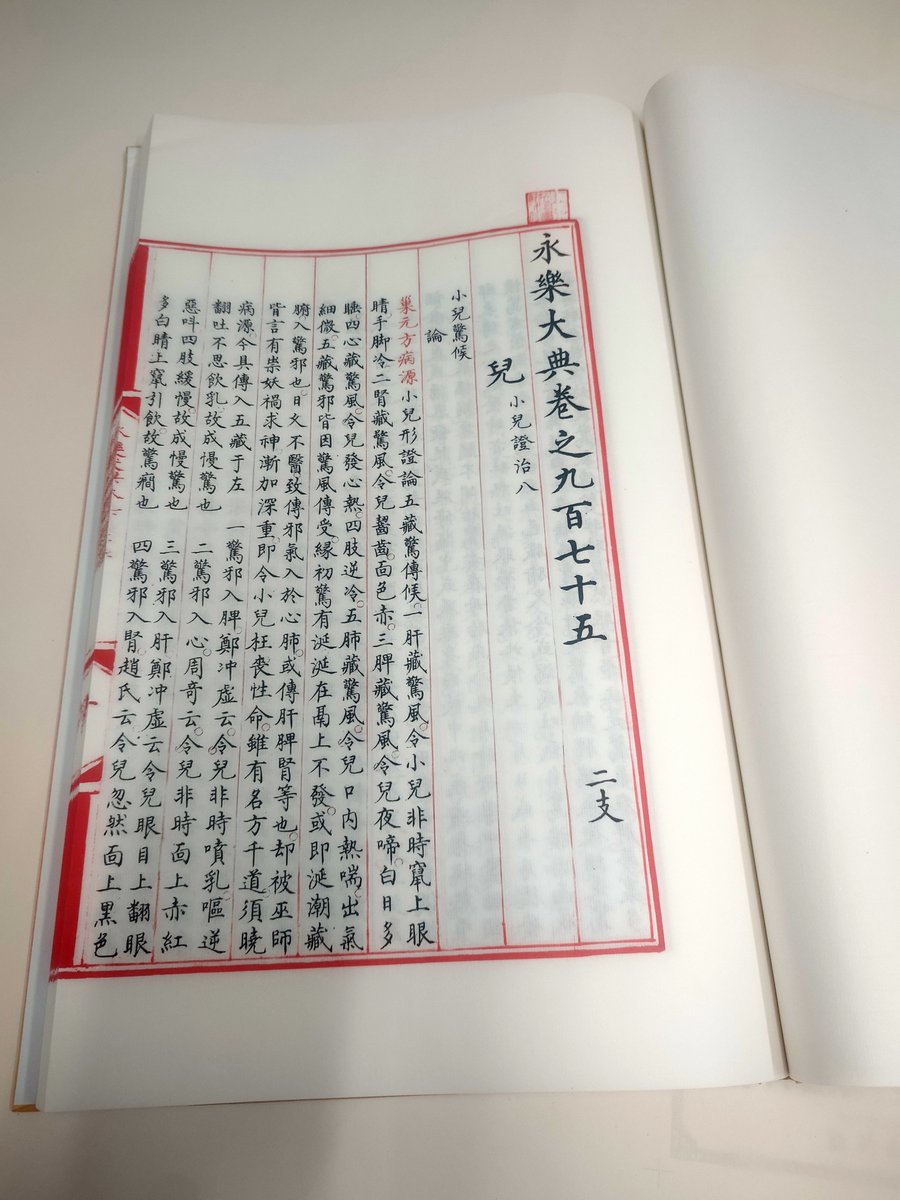 永樂大典卷之九百七十五 二支
兒 小兒證治八
小兒驚候
論
巢元方病源小兒形證論五藏驚傳候。一肝藏驚風。令小兒非時竄上眼
睛手脚冷。二腎藏驚風。令兒齧齒。面色赤。三脾藏驚風。令兒夜啼。白日多
睡。四心藏驚風。令兒發心熱。四肢逆冷。五肺藏驚風。令兒口內熱喘。出氣
細微。五藏驚邪。皆因驚風傳受。緣初驚有涎。涎在鬲上不發。或即涎潮藏
腑。入驚邪也。日久不醫。致傳邪氣入於心肺。或傳肝脾腎等也。却被巫師
皆言有祟妖禍。求神漸加深重。即令小兒枉喪性命。雖有名方千道。須曉
病源。今具傳入五藏于左 一驚邪入脾。鄭冲虛云。令兒非時噴乳。嘔逆
翻吐。不思飲乳。故成慢驚也 二驚邪入心。周奇云。令兒非時面上赤紅
惡呌。四肢緩慢。故成慢驚也 三驚邪入肝。鄭冲虛云。令兒眼目上翻。眼
多白睛。上竄引飲。故驚癇也 四驚邪入腎。趙氏云。令兒忽然面上黑色